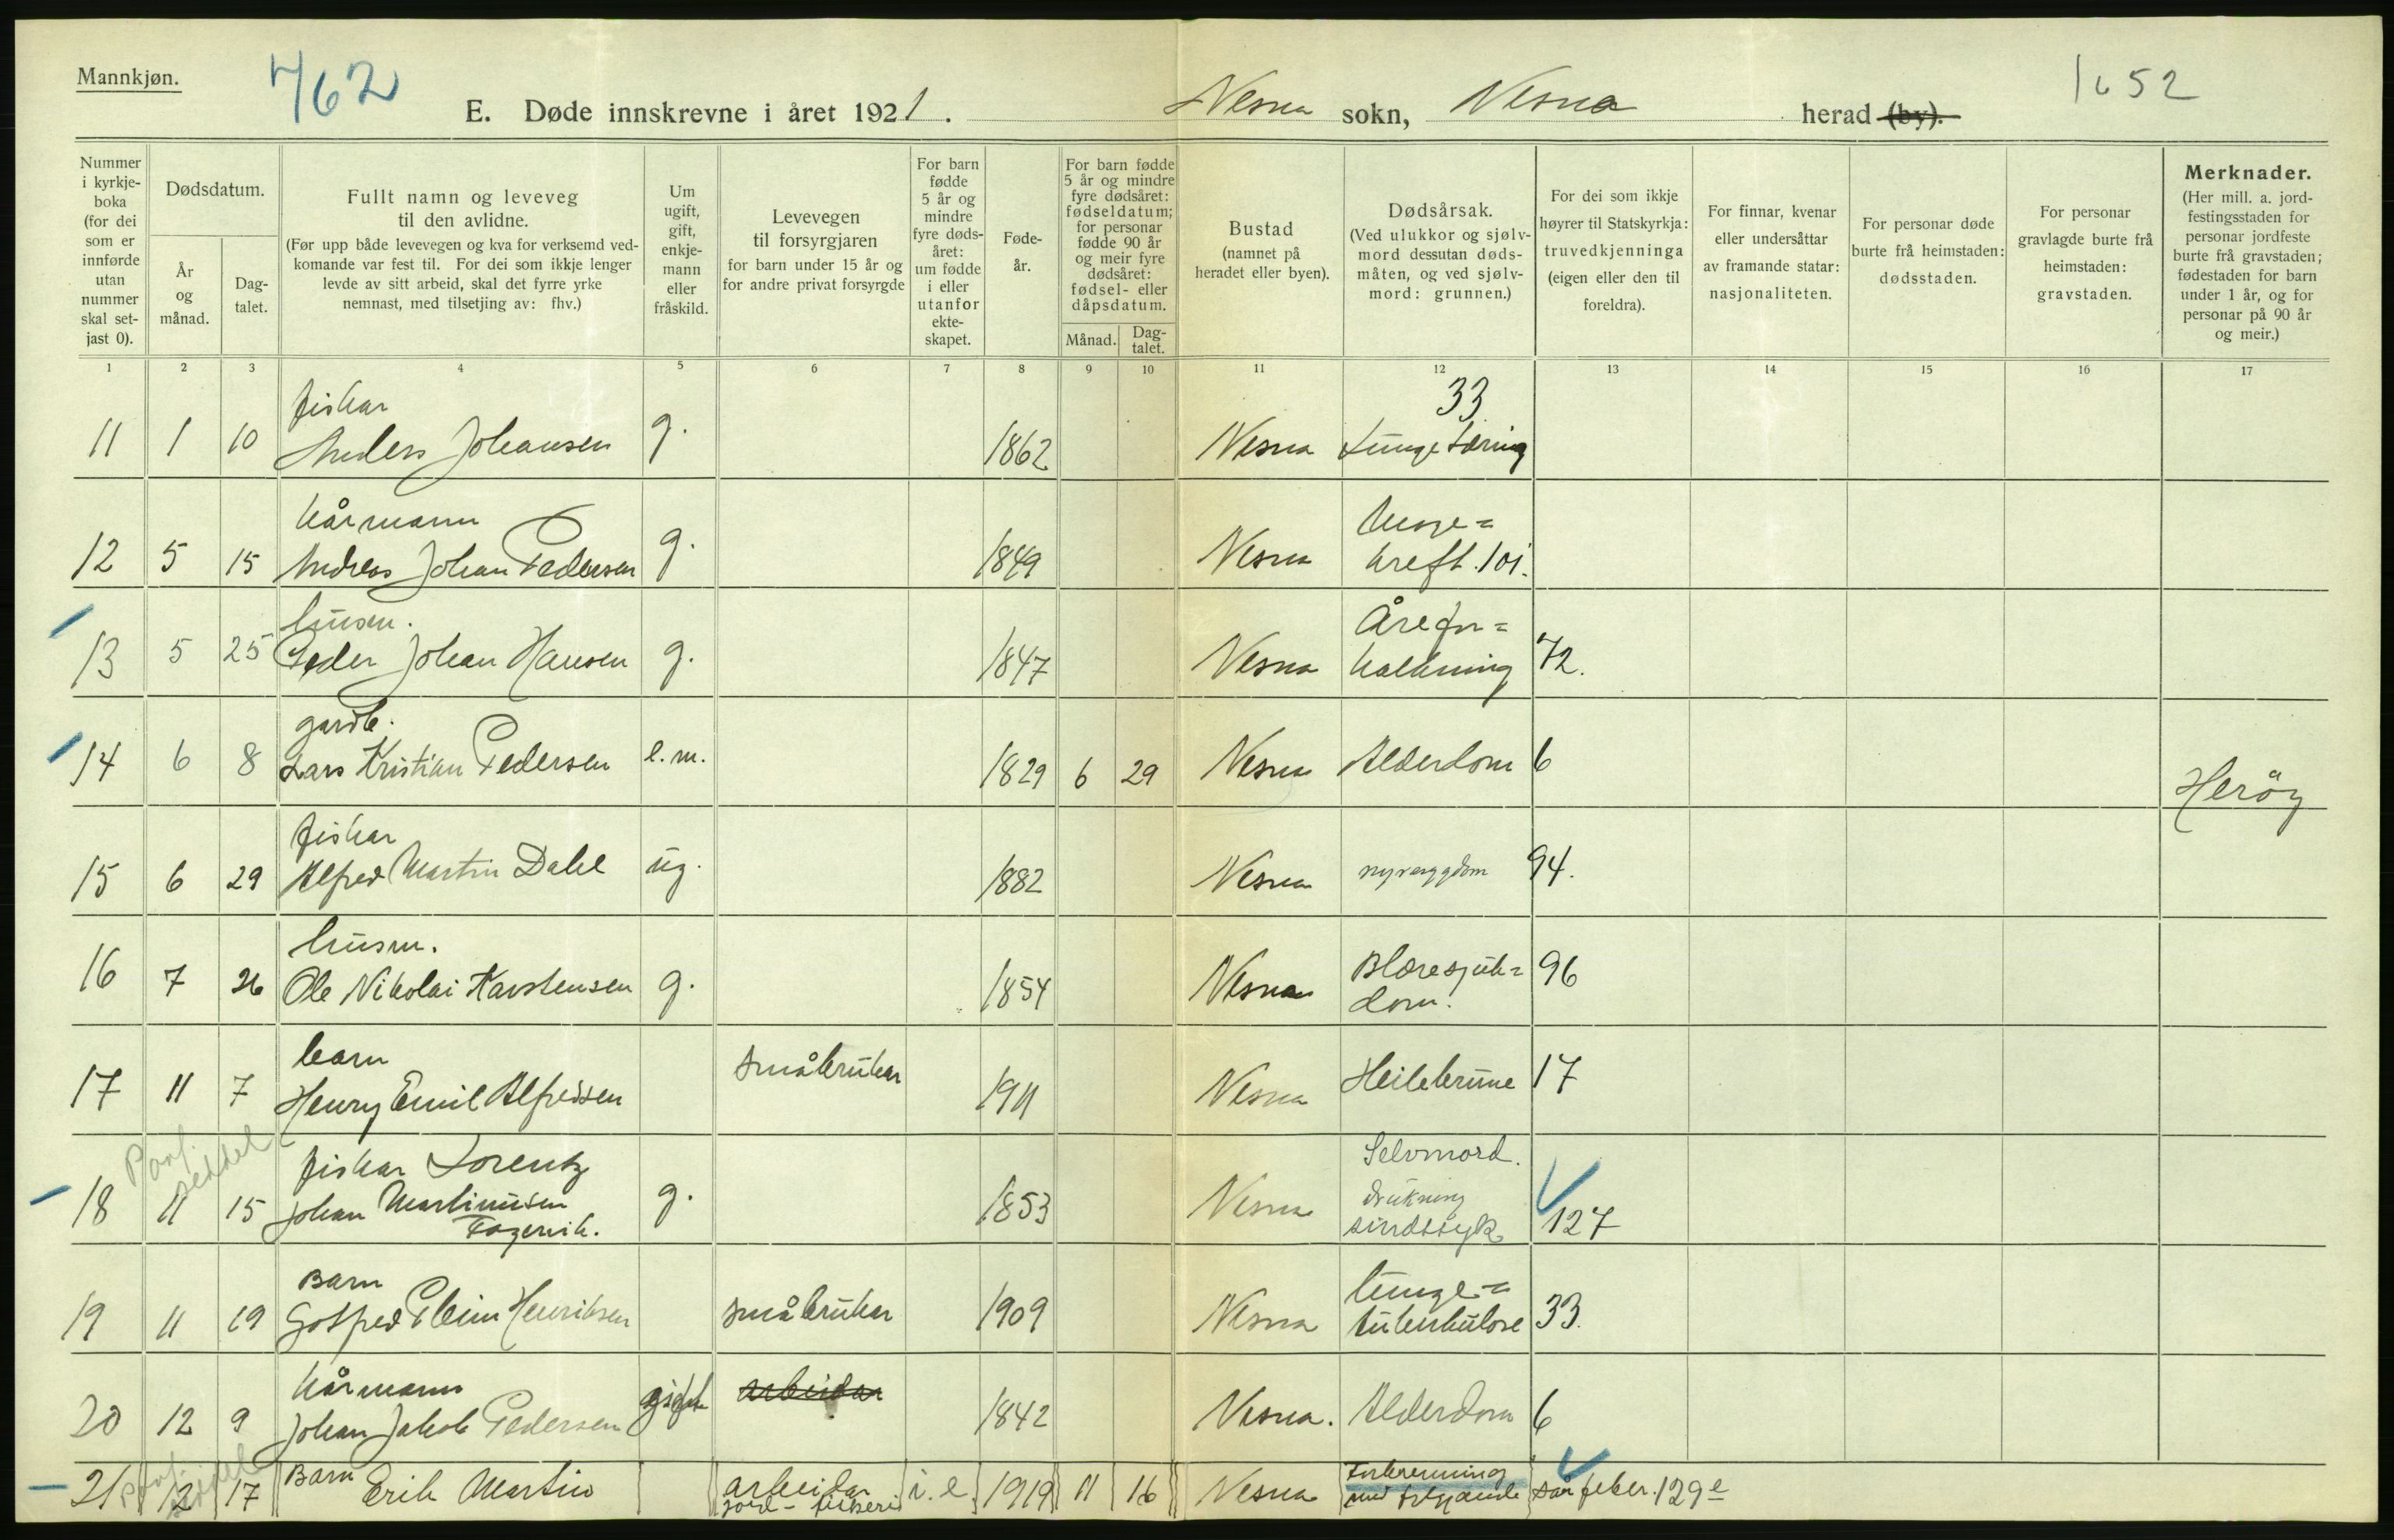 Mannkjøn.
762
1652
E. Døde innskrevne i året 1921. Nesna sokn, Nesna herad (by).
Nummer i kyrkje-boka (for dei som er innførde utan nummer skal set-jast 0).
Dødsdatum.
År og månad.
Dag-talet.
Fullt namn og leveveg til den avlidne.
(Før upp både levevegen og kva for verksemd ved-komande var fest til. For dei som ikkje lenger levde av sitt arbeid, skal det fyrre yrke nemnast, med tilsetjing av: fhv.)
Um ugift, gift, enkje-mann eller fråskild.
Levevegen til forsyrgjaren for barn under 15 år og for andre privat forsyrgde
For barn fødde 5 år og mindre fyre døds-året: um fødde i eller utanfor ekte-skapet.
Føde-år.
For barn fødde 5 år og mindre fyre dødsåret: fødseldatum; for personar fødde 90 år og meir fyre dødsåret: fødsel- eller dåpsdatum.
Månad.
Dag-talet.
Bustad (namnet på heradet eller byen).
Dødsårsak.
(Ved ulukkor og sjølv-mord dessutan døds-måten, og ved sjølv-mord: grunnen.)
For dei som ikkje høyrer til Statskyrkja: truvedkjenninga (eigen eller den til foreldra).
For finnar, kvenar eller undersåttar av framande statar: nasjonaliteten.
For personar døde burte frå heimstaden: dødsstaden.
For personar gravlagde burte frå heimstaden: gravstaden.
Merknader.
(Her mill. a. jord-festingsstaden for personar jordfeste burte frå gravstaden; fødestaden for barn under 1 år, og for personar på 90 år og meir.)
1 2 3 4 5 6 7 8 9 10 11 12 13 14 15 16 17
fiskar 33
11 1 10 Anders Johansen g. 1862 Nesna Lungetæring
kårmann
12 5 15 Andreas Johan Pedersen g. 1849 Nesna kreft. 101.
husm. Årefor=
13 5 25 Peder Johan Hansen g. 1847 Nesna kalkning 72.
gardb.
14 6 8 Lars Kristian Pedersen e.m. 1829 6 29 Nesna Alderdom 6 Herøy
fiskar
15 6 29 Alfred Martin Dahl ug. 1882 Nesna 94.
husm. Blæresjuk=
16 7 26 Ole Nikolai Karstensen g. 1854 Nesna dom. 96
barn
17 11 7 Henry Emil Alfredsen småbrukar 1911 Nesna Heilebrune 17
fiskar Lorentz Selvmord.
18 11 15 Johan Martinusen g. 1853 Nesna drukning
Fagervik. sindssyk 127
Barn lunge=
19 11 19 Gotfred Henriksen småbrukar 1909 Nesna tuberkulose 33.
kårmann
20 12 9 Johan Jakob Pedersen gift arbeidar 1842 Nesna. Alderdom 6
21 12 17 Barn Erik Martin arbeidar i.e. 1919 11 16 Nesna Forbrenning
jord- fiskeri med fylgjande sårfeber. 129e